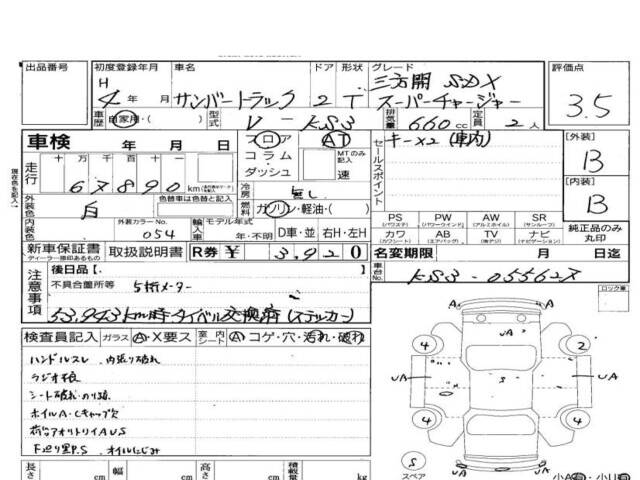 出品番号 初度登録年月 車名 ドア 形状 グレード 評価点
H 4年 月 サンバートラック 2 T 三方開 SDX スーパーチャージャー 3.5
車歴 自家用・( ) 型式 V-KS3 排気量 660cc 定員 2人
車検 年 月 日 フロア AT キー×2(車内) [外装]
走行 十 万 千 百 十 一 コラム・ MTのみ記入 セールスポイント B
67890 km ダッシュ 速
外装色 白 色替車は色替と記入 冷房 無し [内装]
燃料 ガソリン・軽油・( ) B
内装色 外装カラーNo. 054 輸入車 モデル年式 年・不明 D車・並 右H・左H
PS (パワステ) PW (パワーウインド) AW (アルミホイル) SR (サンルーフ) 純正品のみ丸印
カワ (カワシート) AB (エアバッグ) TV ナビ (ナビゲーション)
新車保証書 ディーラー捺印あるもの 取扱説明書 R券 ¥ 3,920 名変期限 月 日迄
注意事項 後日品【. 車台No. KS3-05562X
不具合箇所等 5桁メーター ロック車
53,943km時タイベル交換済(ステッカー)
検査員記入 ガラス A・X要ス 室内シート A コゲ・穴・汚れ・破れ
ハンドルスレ 内張り破れ
ラジオ不良
シート破れ・のり跡
ホイルA・Cキャップ欠
荷台アオリトイタAUS
下廻り里P.S オイルにじみ
長さ cm 幅 cm 高さ cm 積載量 kg
4 2
UA UA UA
4 4
S
スペア
小A 小U